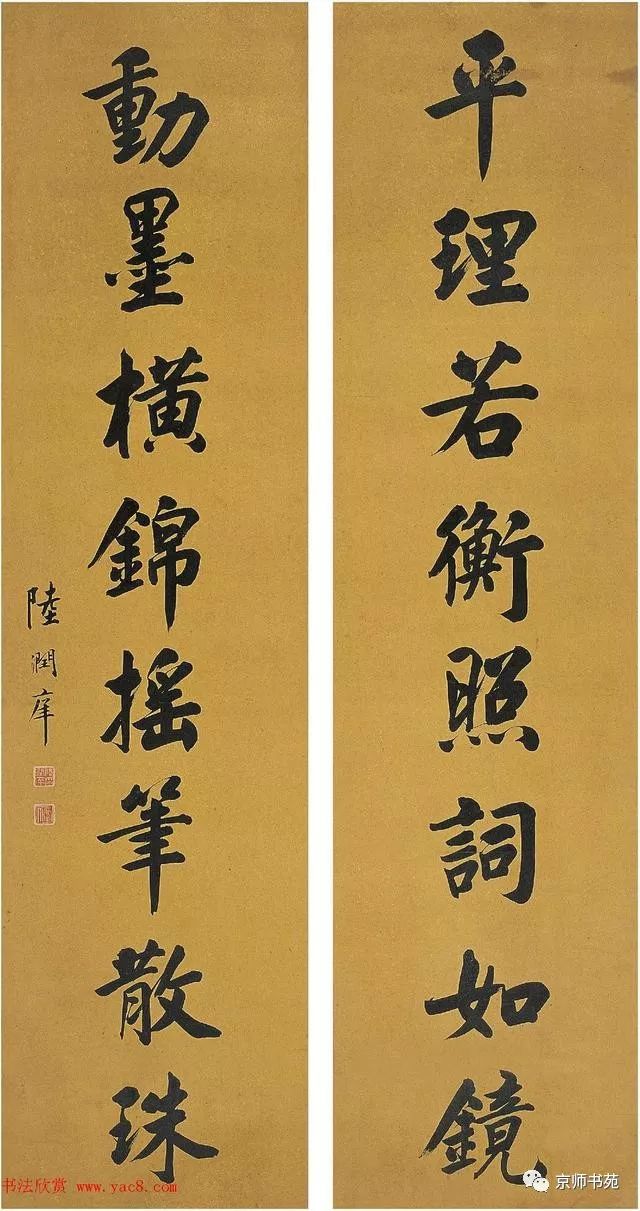 平理若衡照詞如鏡
動墨橫錦摇筆散珠
陸潤庠
书法欣赏 www.yac8.com
京师书苑